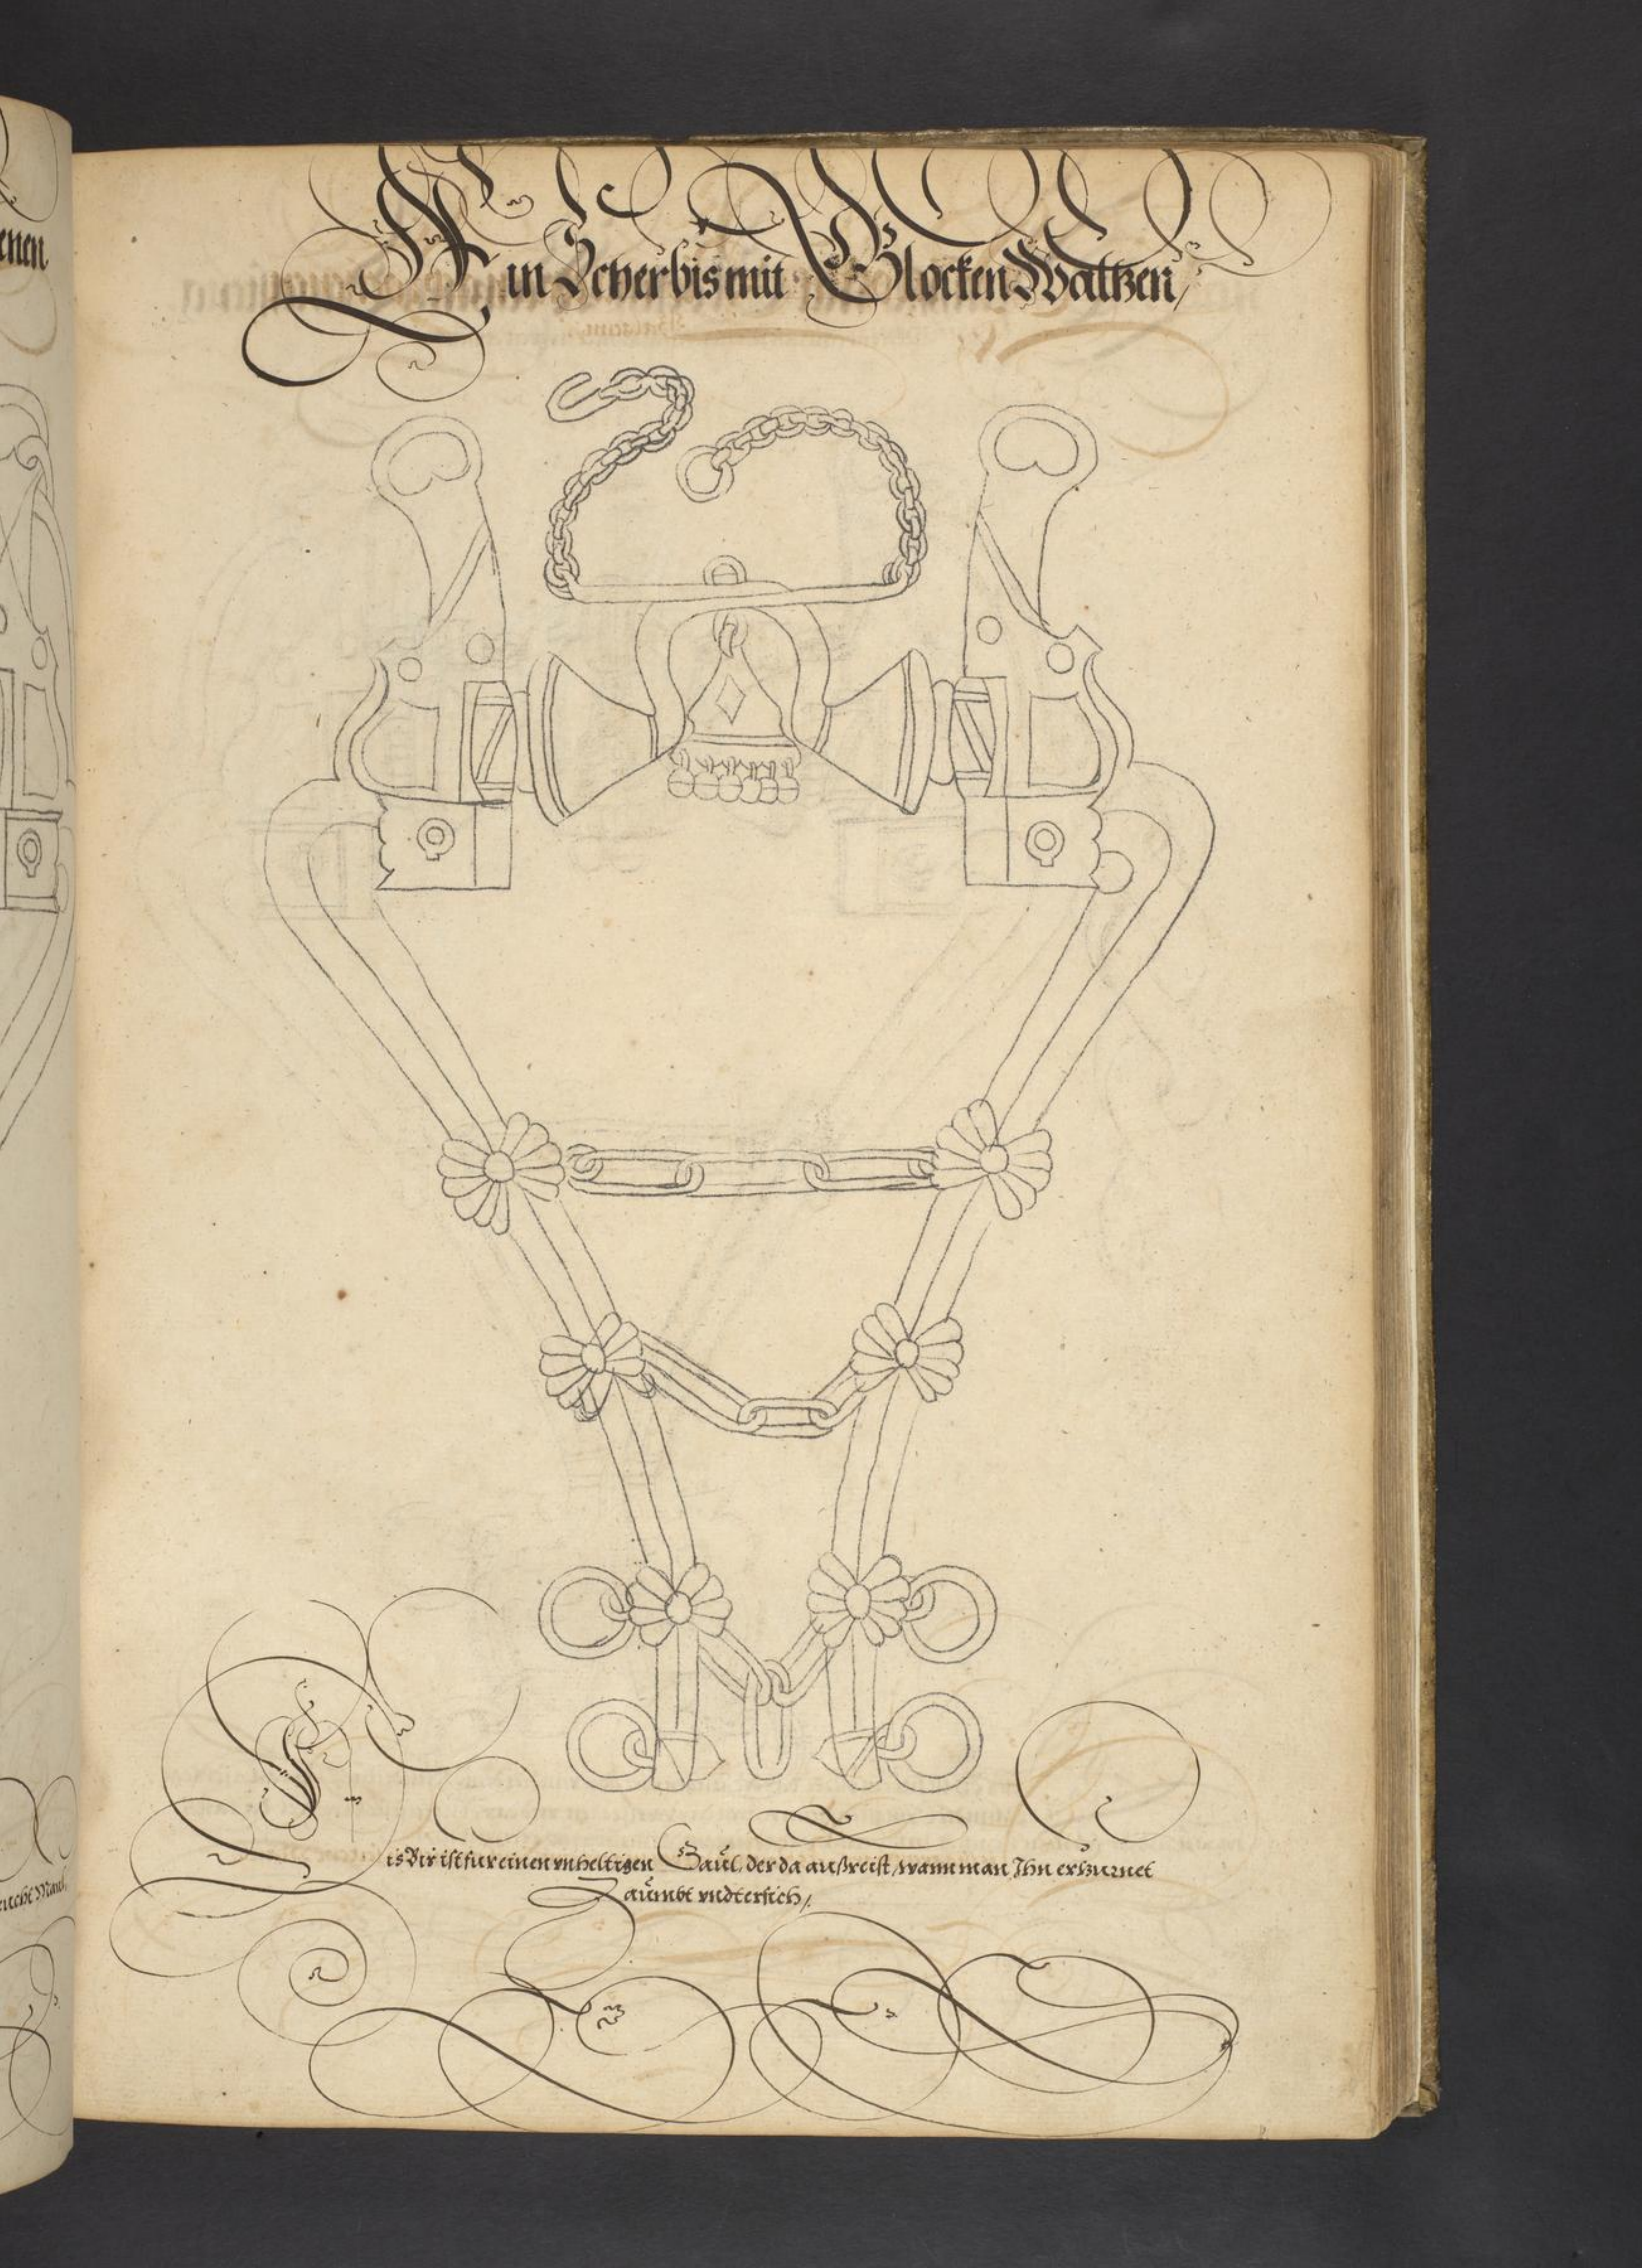 enen
Ein Scherbis mit Glocken Waltzen /
ncht Maul,
Dis Bir ist fur einen vnheltigen Gaul, der da außreist, wann man Ihn erzurnet
Zaumbt vndtersich /